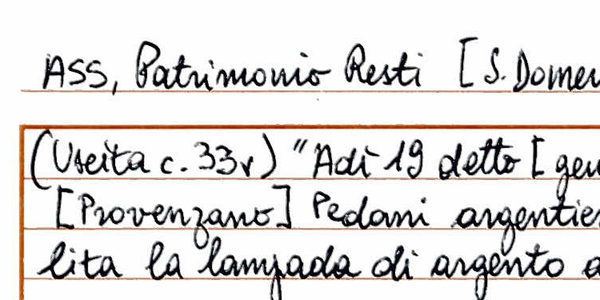 ASS, Patrimonio Resti [S. Domen
(Uscita c. 33v) "Adì 19 detto [gen
[Provenzano] Pedani argentier
lita la lampada di argento a